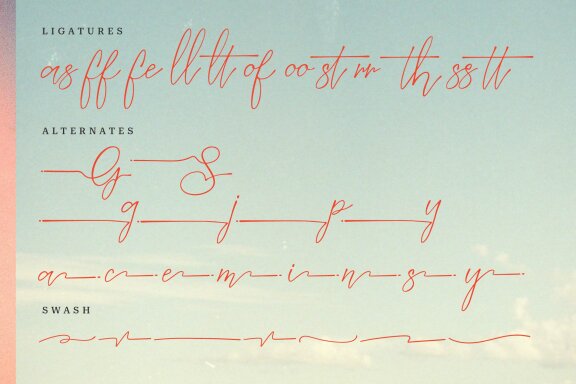 LIGATURES
as ff fe ll lt of oo st rr th ss tt
ALTERNATES
G S
g j p y
a c e m i n s y
SWASH